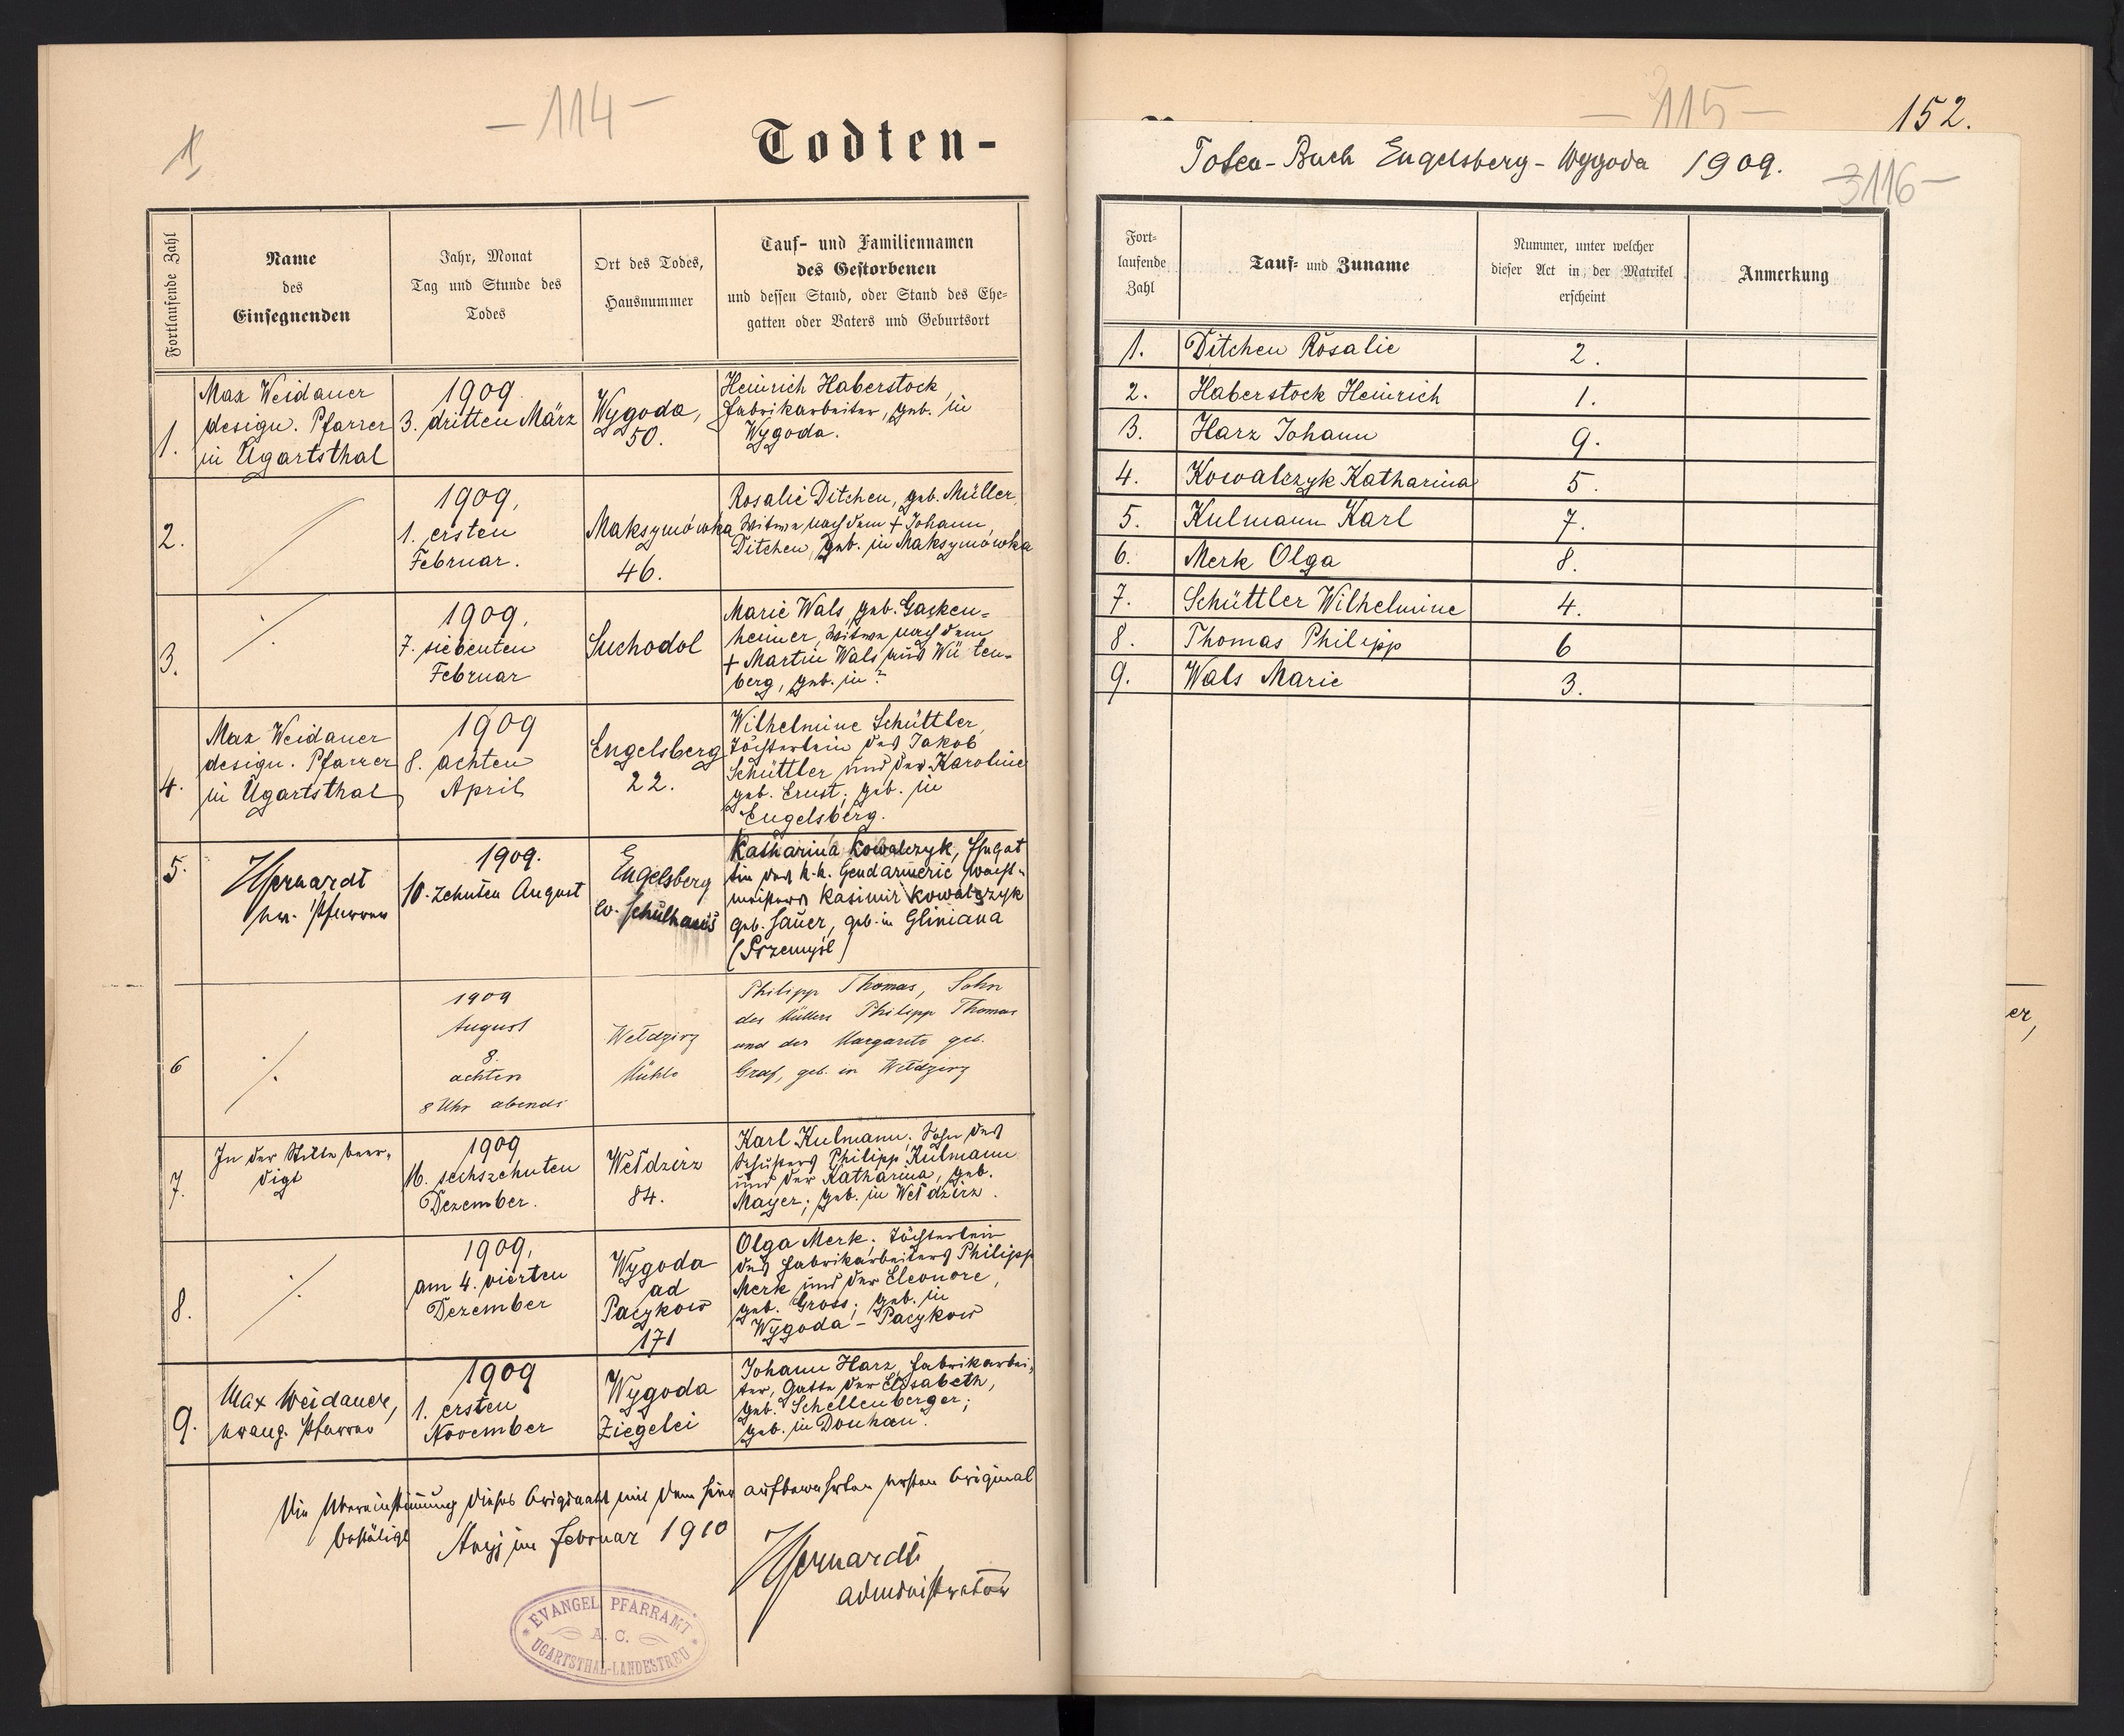 — 114 —
1
Todten-
Fortlaufende Zahl
Name
des
Einsegnenden
Jahr, Monat
Tag und Stunde des
Todes
Ort des Todes,
Hausnummer
Tauf- und Familiennamen
des Gestorbenen
und dessen Stand, oder Stand des Ehe-
gatten oder Vaters und Geburtsort
1.
Max Weidauer
design. Pfarrer
in Ugartsthal
1909.
3. dritten März
Wygoda,
50.
Heinrich Haberstock,
Fabrikarbeiter, geb. in
Wygoda.
2.
1909,
1. ersten
Februar.
Maksymówka
46.
Rosalie Ditchen, geb. Müller,
Witwe nach dem + Johann
Ditchen, geb. in Maksymówka
3.
1909,
7. siebenten
Februar
Suchodol
Marie Wals, geb. Gasken-
heimer, Witwe nach dem
+ Martin Wals aus Wü ten-
berg, geb. in ?
4.
Max Weidauer
design. Pfarrer
in Ugartsthal
1909
8. achten
April
Engelsberg
22.
Wilhelmine Schüttler,
Töchterlein des Jakob
Schüttler und der Karoline
geb. Ernst; geb. in
Engelsberg.
5.
ev. Pfarrer
1909.
10. zehnten August
Engelsberg
ev. Schulhaus
Katharina Kowalczyk, Ehegat
tin des k.k. Gendarmerie Wacht-
meisters Kasimir Kowalczyk
geb. Sauer, geb. in Gliniana
(Przemyśl)
6
1909
August
8.
achten
8 Uhr abends
Weldzirz
Mühle
Philipp Thomas, Sohn
des Müllers Philipp Thomas
und der Margarete geb.
Graf, geb. in Weldzirz
7.
In der Stille beer-
digt
1909
16. sechszehnten
Dezember.
Wełdzirz
84.
Karl Kulmann; Sohn des
Schusters Philipp Kulmann
und der Katharina, geb.
Mayer; geb. in Wełdzirz.
8.
1909,
am 4. vierten
Dezember
Wygoda
ad
Pacykow
171
Olga Merk; Töchterlein
des Fabrikarbeiters Philipp
Merk und der Eleonore,
geb. Gross; geb. in
Wygoda - Pacykow
9.
Max Weidauer,
evang. Pfarrer
1909
1. ersten
November
Wygoda
Ziegelei
Johann Harz, Fabrikarbei-
ter, Gatte der Elisabeth,
geb. Schellenberger;
geb. in Douhan.
Die Übereinstimmung dieses Originals mit dem hier aufbewahrten ersten Original
bestätigt
im Februar 1910
Administrator
EVANGEL. PFARRAMT
A. C.
UGARTSTHAL-LANDESTREU
— 115 —
152.
Toten-Buch Engelsberg-Wygoda 1909.
116 —
Fort-
laufende
Zahl
Tauf- und Zuname
Nummer, unter welcher
dieser Act in der Matrikel
erscheint
Anmerkung
1. Ditchen Rosalie 2.
2. Haberstock Heinrich 1.
3. Harz Johann 9.
4. Kowalczyk Katharina 5.
5. Kulmann Karl 7.
6. Merk Olga 8.
7. Schüttler Wilhelmine 4.
8. Thomas Philipp 6
9. Wals Marie 3.
er,